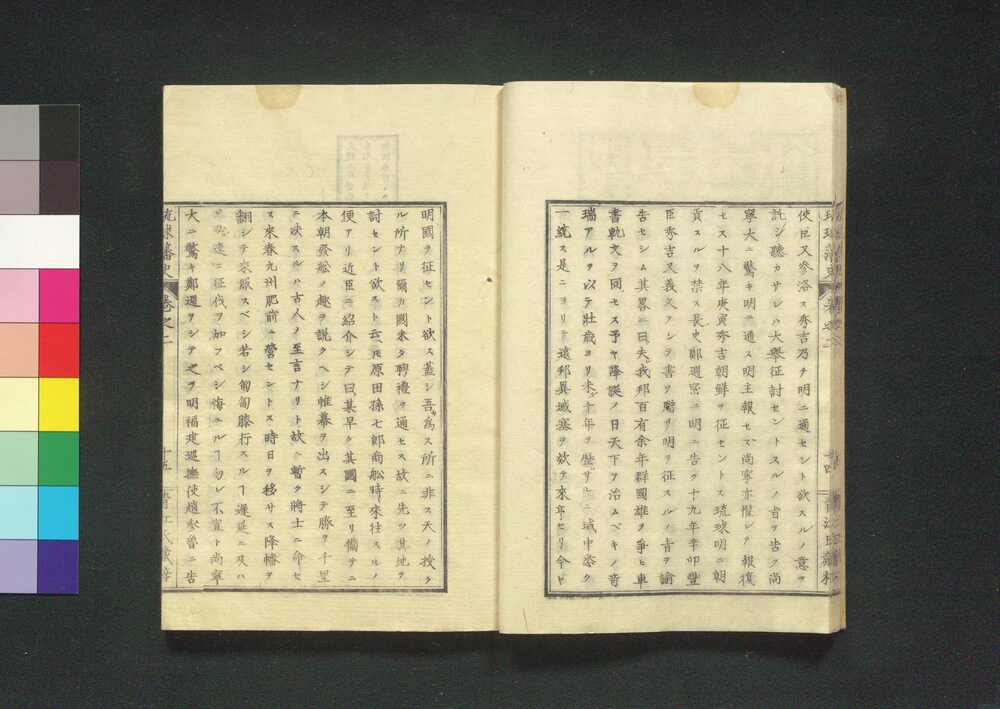 使臣又參洛ス秀吉乃チ明ニ通セント欲スルノ意ヲ
託シ聽カサレハ大擧征討セントスルノ旨ヲ告ク尚
寧大ニ驚キ明ニ通ス明主報セス尚寧亦懼レテ報復
セス十八年庚寅秀吉朝鮮ヲ征セントス琉球明ニ朝
貢スルヲ禁ス長史鄭迵密ニ明ニ告ク十九年辛卯豐
臣秀吉又義久ヲシテ書ヲ贈リ明ヲ征スルノ旨ヲ諭
告セシム其畧ニ曰夫我邦百有余年群國雄ヲ爭ヒ車
書軌文ヲ同セス予ヤ降誕ノ日天下ヲ治ムベキノ竒
瑞アルヲ以テ壯歳ヨリ未タ十年ヲ歴サルニ域中悉ク
一統ス是ニヨリテ遠邦異域塞ヲ欵テ來享セリ今ヤ
明國ヲ征セント欲ス蓋シ吾為ス所ニ非ス天ノ授ク
ル所ナリ爾カ國未タ聘禮ヲ通セス故ニ先ツ其地ヲ
討セント欲スト云モ原田孫七郎商舩時來往スルノ
便アリ近臣ニ紹介シテ曰某早ク其國ニ至リ備サニ
本朝發舩ノ趣ヲ説クヘシ帷幕ヲ出スシテ勝ヲ千里
ニ决スルハ古人ノ至言ナリト故ニ暫ク將士ニ命セ
ス來春九州肥前ニ營セントス時日ヲ移サス降幡ヲ
翻シテ來服スベシ若シ匍匐膝行スルヿ遲延ニ及ハ
速ニ征伐ヲ加フベシ悔ユルヿ勿レ不宣ト尚寧
大ニ驚キ鄭迵ヲシテ之ヲ明福建巡撫使趙參魯ニ告
琉球藩史 卷之二 十五